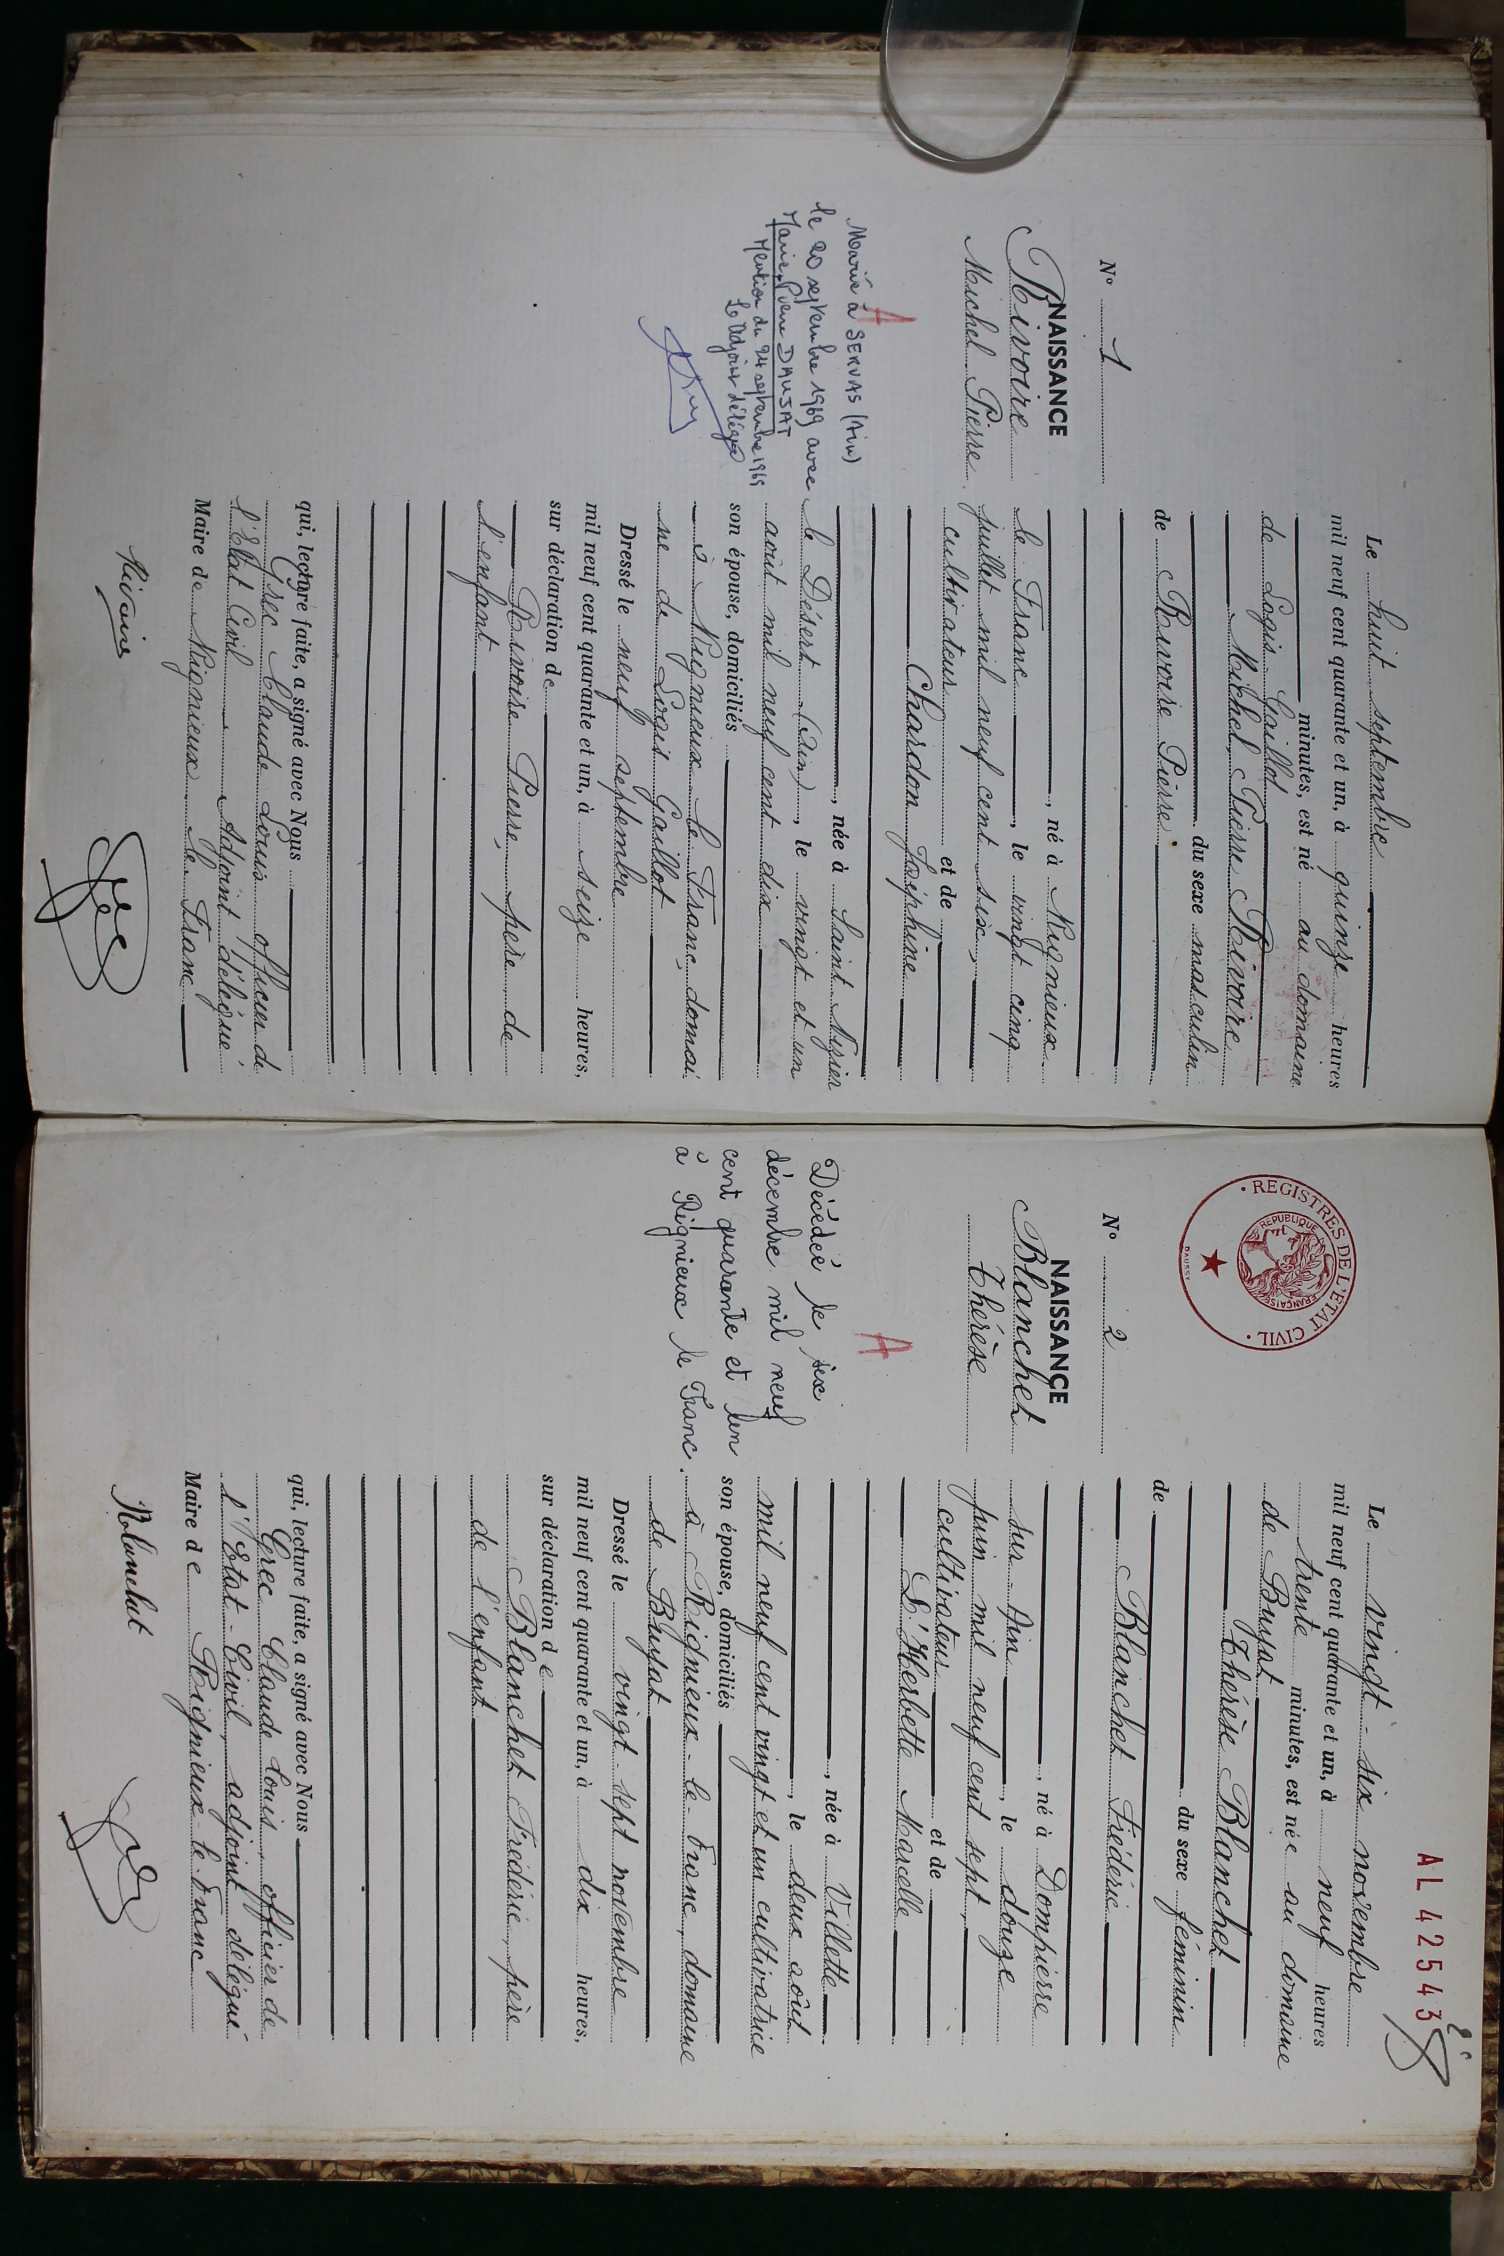 N° 1
NAISSANCE
Rivoire
Michel Pierre
A
Marié à SERVAS (Ain)
le 20 septembre 1969 avec
Marie, Pierre DAUJAT
Mention du 24 septembre 1969
Le adjoint délégué
Le huit septembre
mil neuf cent quarante et un, à quinze heures
minutes, est né au domaine
de Logis Gaillot
Michel, Pierre Rivoire
du sexe masculin
de Rivoire Pierre
, né à Rignieux
le Franc , le vingt cinq
juillet mil neuf cent six,
cultivateur et de
Chardon Joséphine
, née à Saint Nizier
le Désert (Ain) , le vingt et un
août mil neuf cent dix
son épouse, domiciliés
à Rignieux le Franc, domai
ne de Logis Gaillot
Dressé le neuf septembre
mil neuf cent quarante et un, à seize heures,
sur déclaration de
Rivoire Pierre, père de
l'enfant
qui, lecture faite, a signé avec Nous
Grec Claude Louis officier de
l'Etat Civil Adjoint délégué
Maire de Rignieux le Franc
Rivoire
REGISTRES DE L'ETAT CIVIL
REPUBLIQUE FRANÇAISE
DAUSSY
N° 2
NAISSANCE
Blanchet
Thérèse
A
Décédée le six
décembre mil neuf
cent quarante et un
à Rignieux le Franc.
AL 42543
Le vingt-six novembre
mil neuf cent quarante et un, à neuf heures
trente minutes, est née au domaine
de Buyat
Thérèse Blanchet
du sexe féminin
de
Blanchet Frédéric
, né à Dompierre
sur Ain , le douze
juin mil neuf cent sept,
cultivateur et de
L'Herbette Marcelle
, née à Villette
, le deux août
mil neuf cent vingt et un cultivatrice
son épouse, domiciliés
à Rignieux-le-Franc, domaine
de Buyat
Dressé le vingt-sept novembre
mil neuf cent quarante et un, à dix heures,
sur déclaration de
Blanchet Frédéric, père
de l'enfant
qui, lecture faite, a signé avec Nous
Grec Claude Louis, officier de
l'Etat-Civil, adjoint délégué
Maire de Rignieux-le-Franc
Blanchet